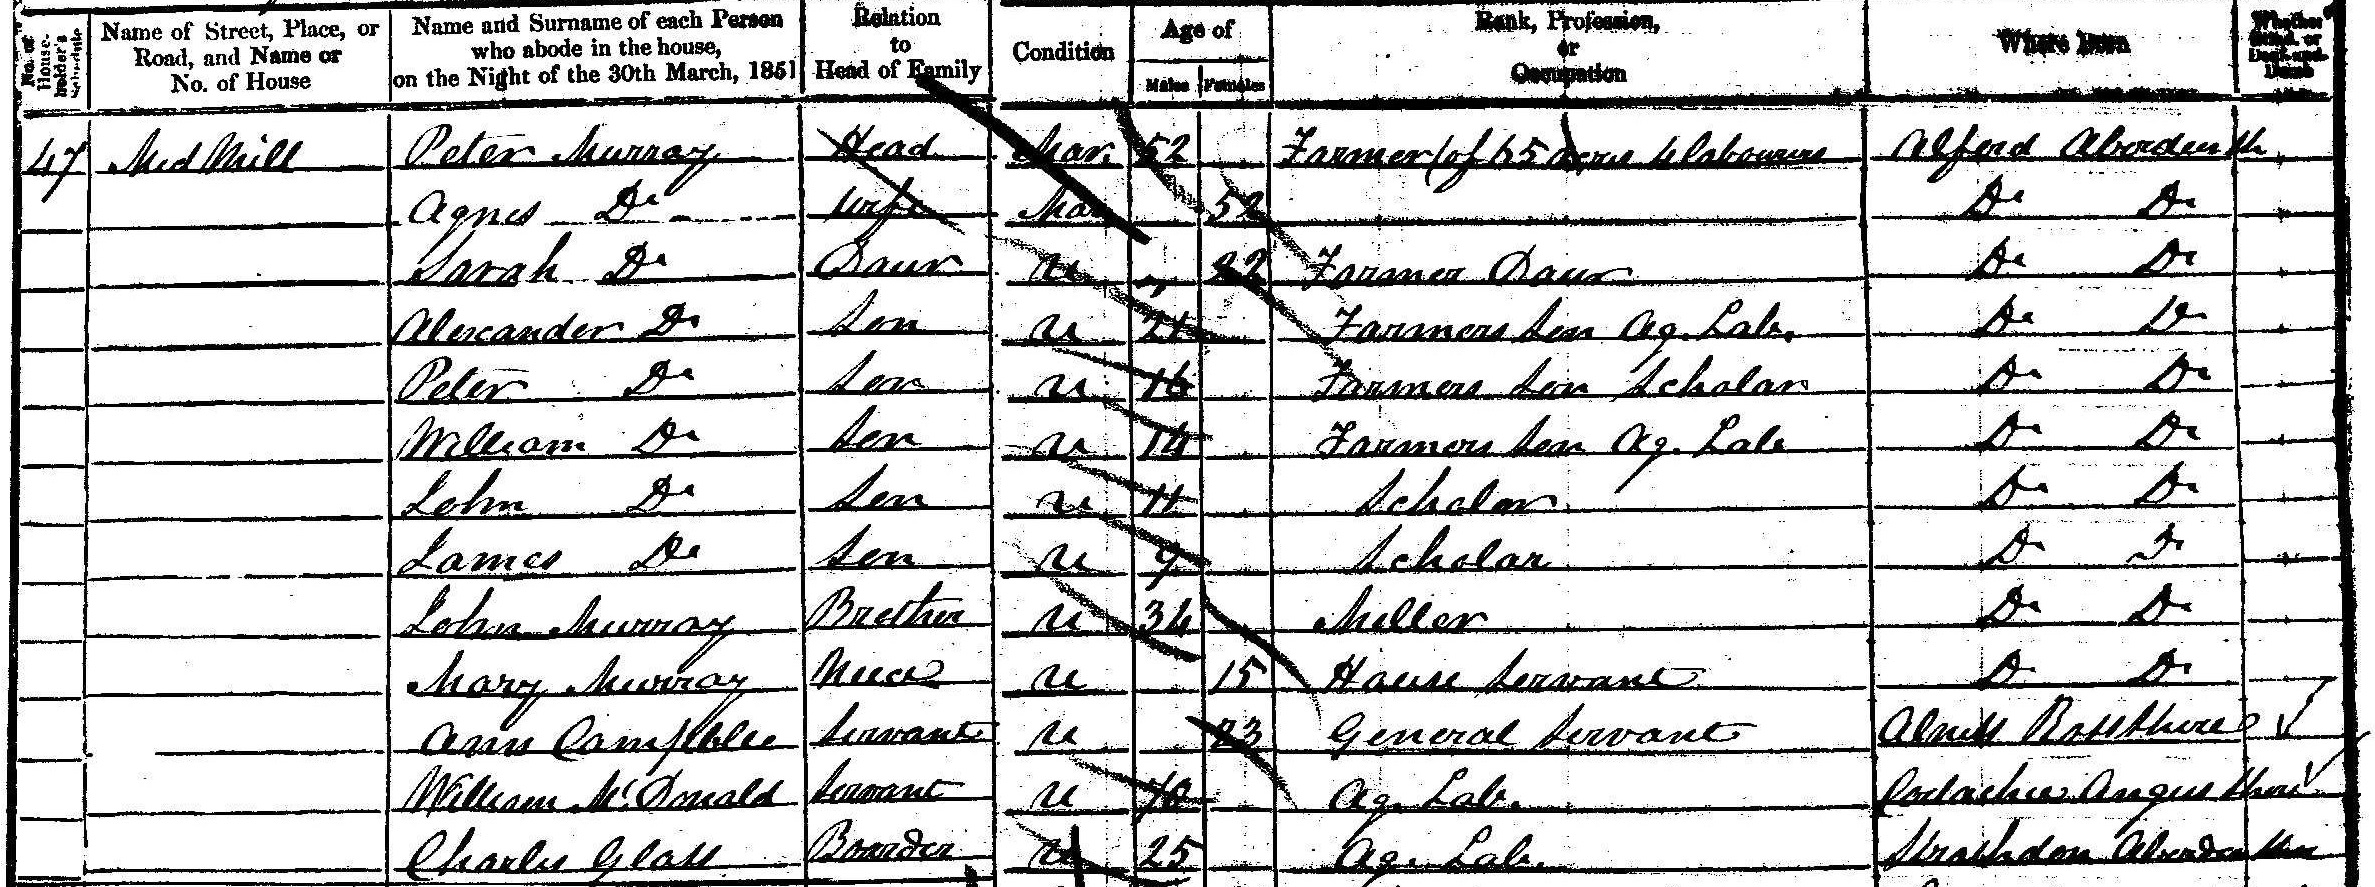 No. of House-holder's Schedule | Name of Street, Place, or Road, and Name or No. of House | Name and Surname of each Person who abode in the house, on the Night of the 30th March, 1851 | Relation to Head of Family | Condition | Age of Males | Females | Rank, Profession, or Occupation | Where Born | Whether Blind, or Deaf-and-Dumb
47 Mid Mill Peter Murray Head Mar. 52 Farmer (of 65 acres 4 labourers Alford Aberdeen Sh.
Agnes Do Wife Mar 52 Do Do
Sarah Do Daur U 22 Farmer Daur Do Do
Alexander Do Son U 21 Farmers Son Ag. Lab. Do Do
Peter Do Son U 16 Farmers Son Scholar Do Do
William Do Son U 14 Farmers Son Ag. Lab Do Do
John Do Son U 11 Scholar Do Do
James Do Son U 9 Scholar Do Do
John Murray Brother U 34 Miller Do Do
Mary Murray Neece U 15 House Servant Do Do
Ann Campble Servant U 23 General Servant Alness Rossshire
William McDonald Servant U Ag. Lab. Angus Shire
Charles Glass Boarder U 25 Ag. Lab. Strathdon Aberdeen Shire